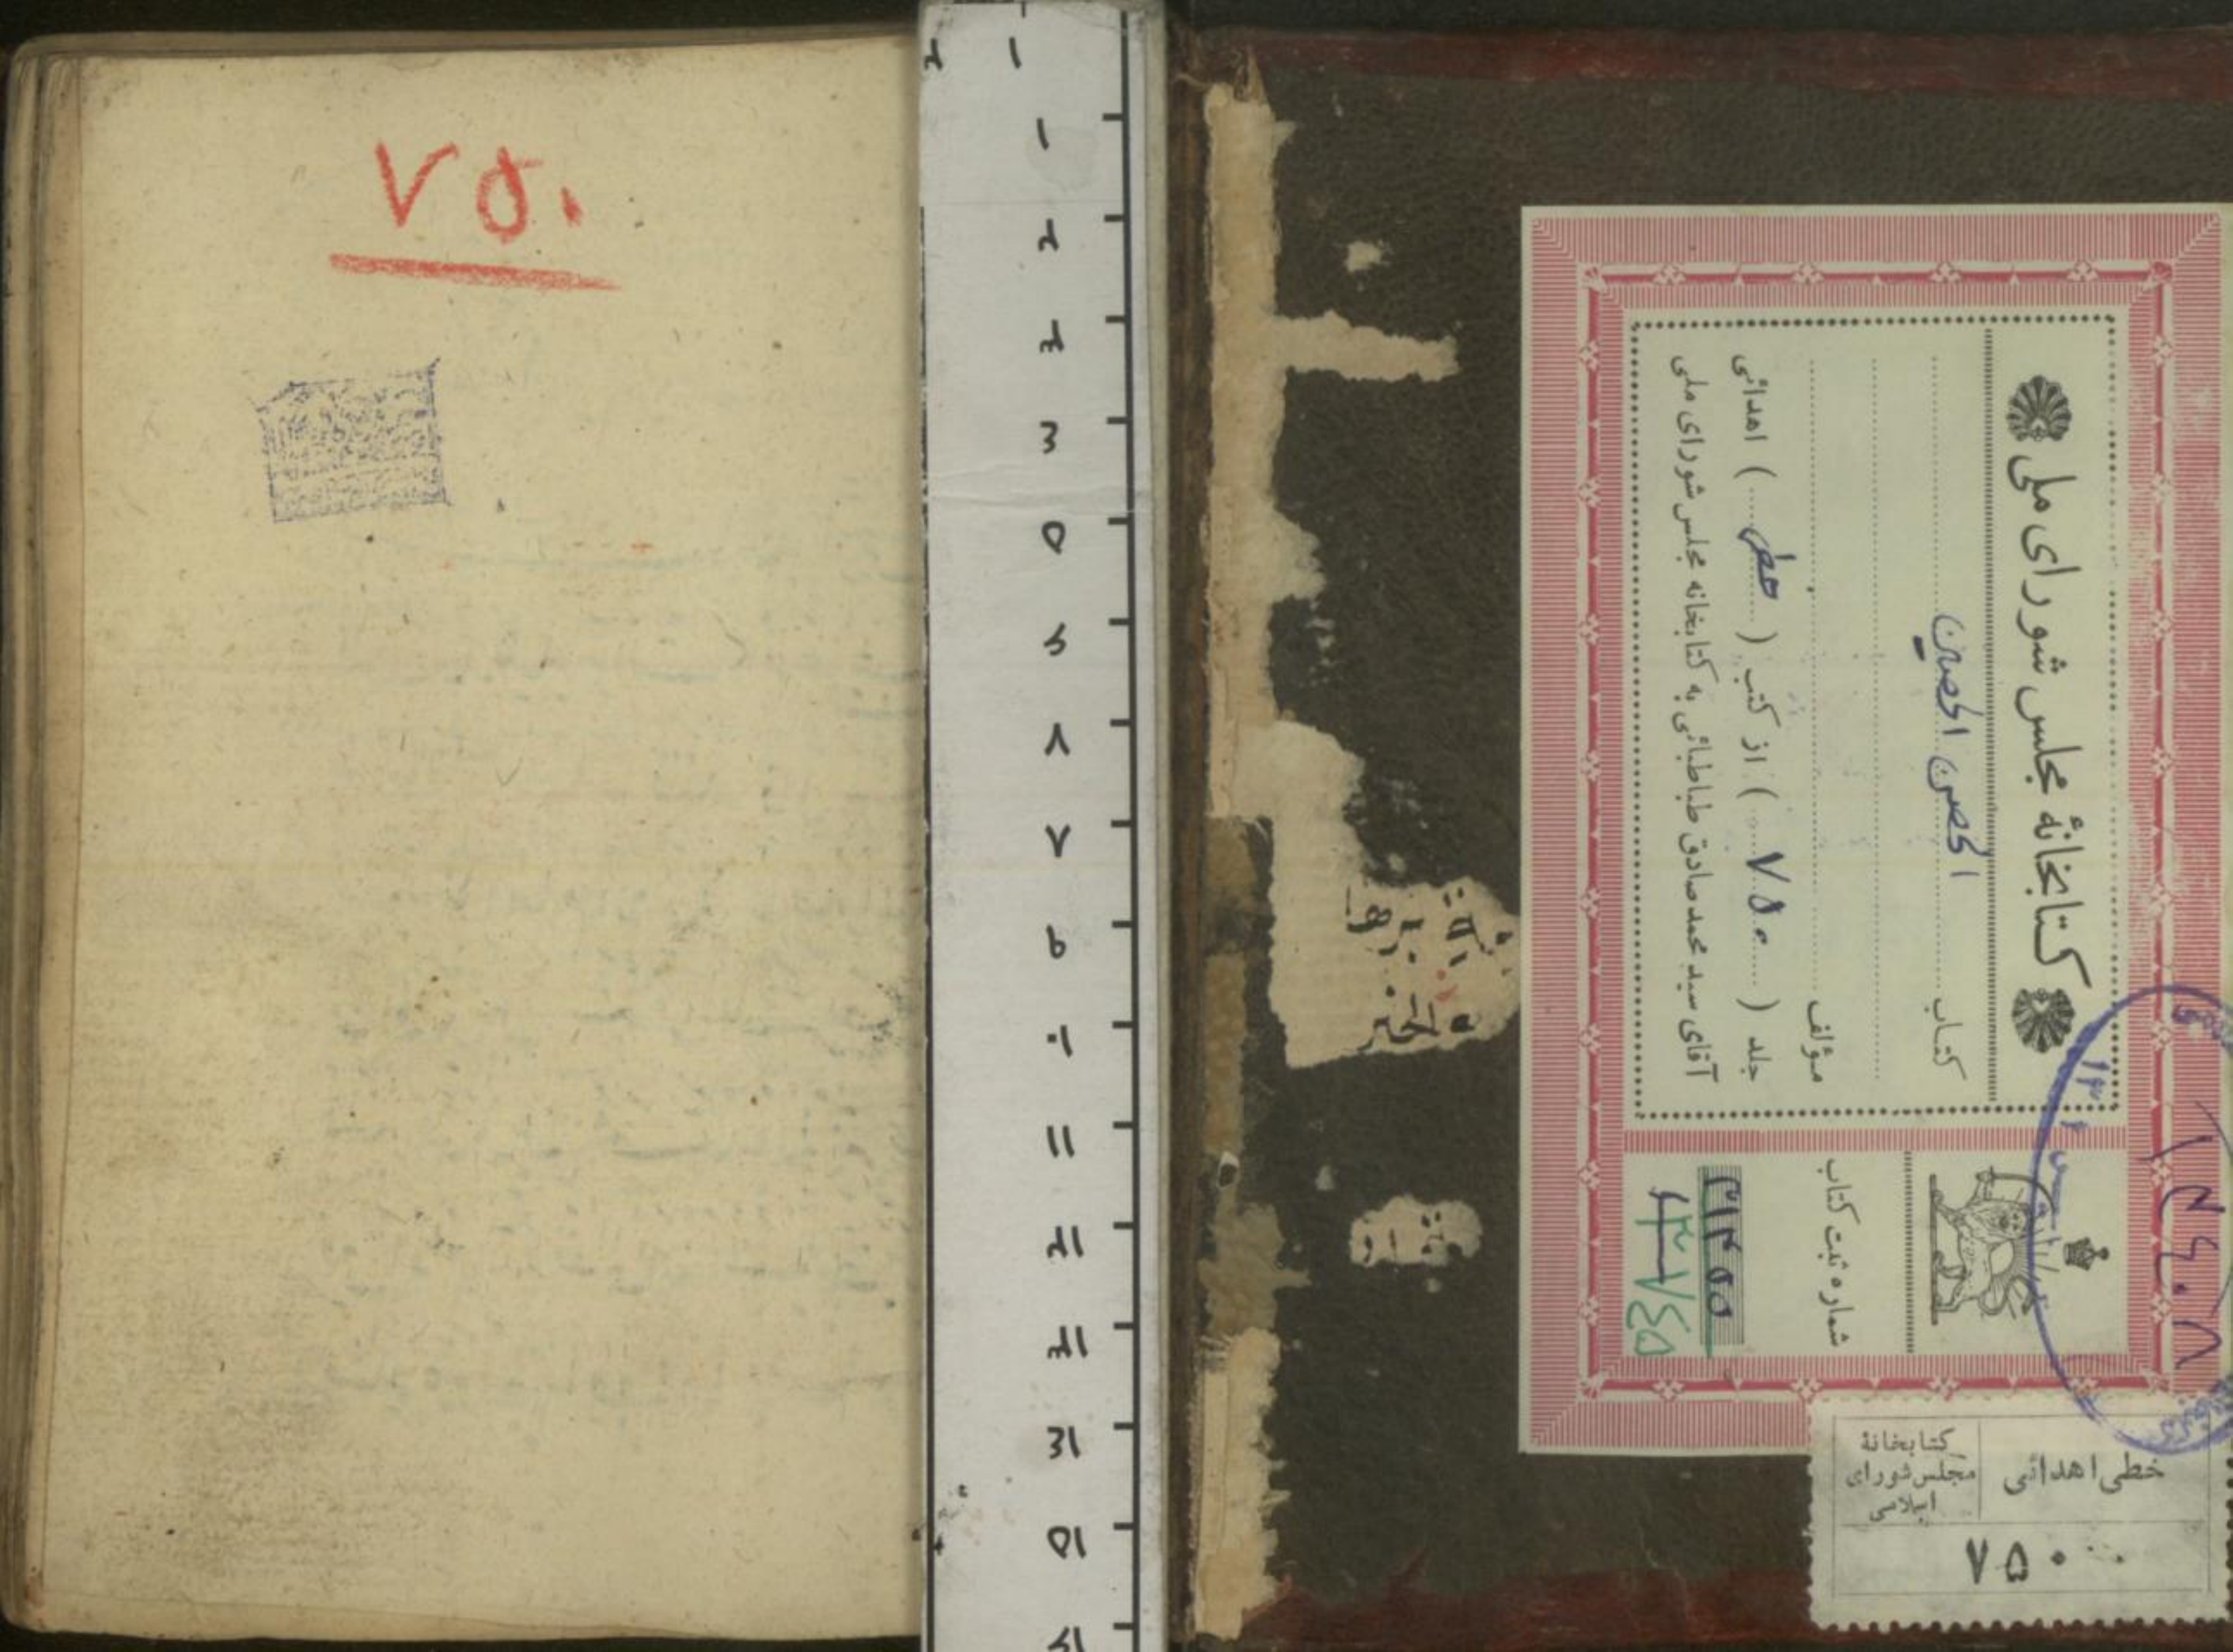 ۷۵۰
کتابخانهٔ مجلس شورای ملی
کتاب الحصن الحصین
مؤلف
جلد ( ۷۵۰ ) از کتب ( خطی ) اهدائی
آقای سید محمد صادق طباطبائی به کتابخانه مجلس شورای ملی
شماره ثبت کتاب
خطی اهدائی
کتابخانهٔ
مجلس شورای
اسلامی
۷۵۰
۱
۲
۳
۴
۵
۶
۷
۸
۹
۱۰
۱۱
۱۲
۱۳
۱۴
۱۵